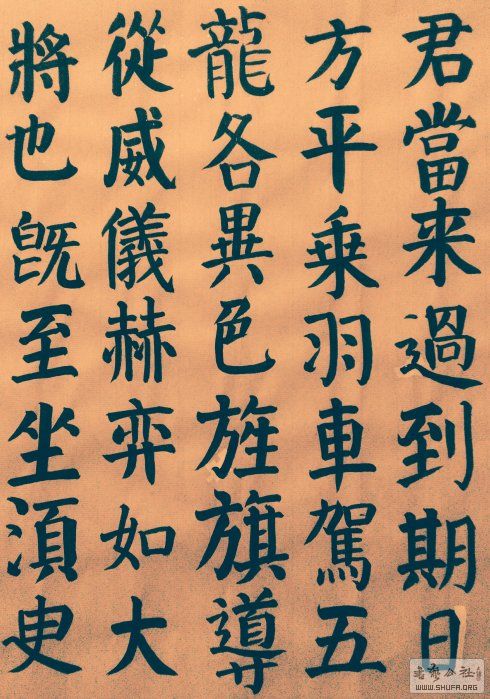 君當来過到期日
方平乗羽車駕五
龍各異色旌旗導
從威儀赫弈如大
將也既至坐須臾
書藝公社
WWW.SHUFA.ORG